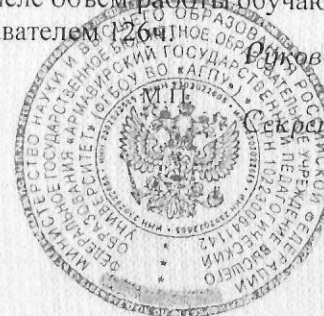 числе объем работы обучаю
авателем 126ч.
Руков
М.П.
Секрет
МИНИСТЕРСТВО НАУКИ И ВЫСШЕГО ОБРАЗОВАНИЯ РОССИЙСКОЙ ФЕДЕРАЦИИ
ФЕДЕРАЛЬНОЕ ГОСУДАРСТВЕННОЕ БЮДЖЕТНОЕ ОБРАЗОВАТЕЛЬНОЕ УЧРЕЖДЕНИЕ ВЫСШЕГО
ОБРАЗОВАНИЯ «АРМАВИРСКИЙ ГОСУДАРСТВЕННЫЙ ПЕДАГОГИЧЕСКИЙ
УНИВЕРСИТЕТ» (ФГБОУ ВО «АГПУ»)